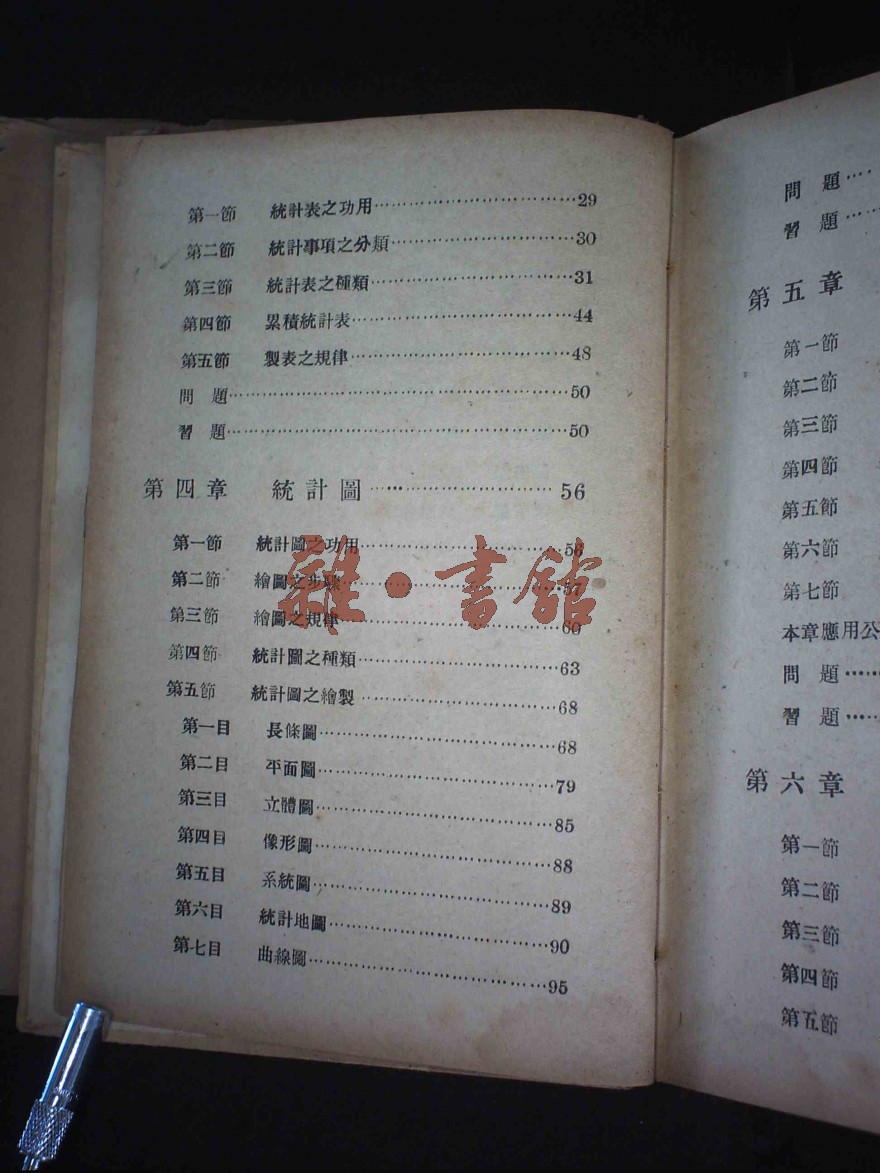 第一節 統計表之功用……………………………29
第二節 統計事項之分類…………………………30
第三節 統計表之種類……………………………31
第四節 累積統計表………………………………44
第五節 製表之規律………………………………48
問 題………………………………………………50
習 題………………………………………………50
第四章 統計圖………………………56
第一節 統計圖之功用……………………………56
第二節 繪圖之步驟………………………………57
第三節 繪圖之規律………………………………60
第四節 統計圖之種類……………………………63
第五節 統計圖之繪製……………………………68
第一目 長條圖……………………………………68
第二目 平面圖……………………………………79
第三目 立體圖……………………………………85
第四目 像形圖……………………………………88
第五目 系統圖……………………………………89
第六目 統計地圖…………………………………90
第七目 曲線圖……………………………………95
雜·書館
問 題……
習 題……
第五章
第一節
第二節
第三節
第四節
第五節
第六節
第七節
本章應用公
問 題……
習 題……
第六章
第一節
第二節
第三節
第四節
第五節